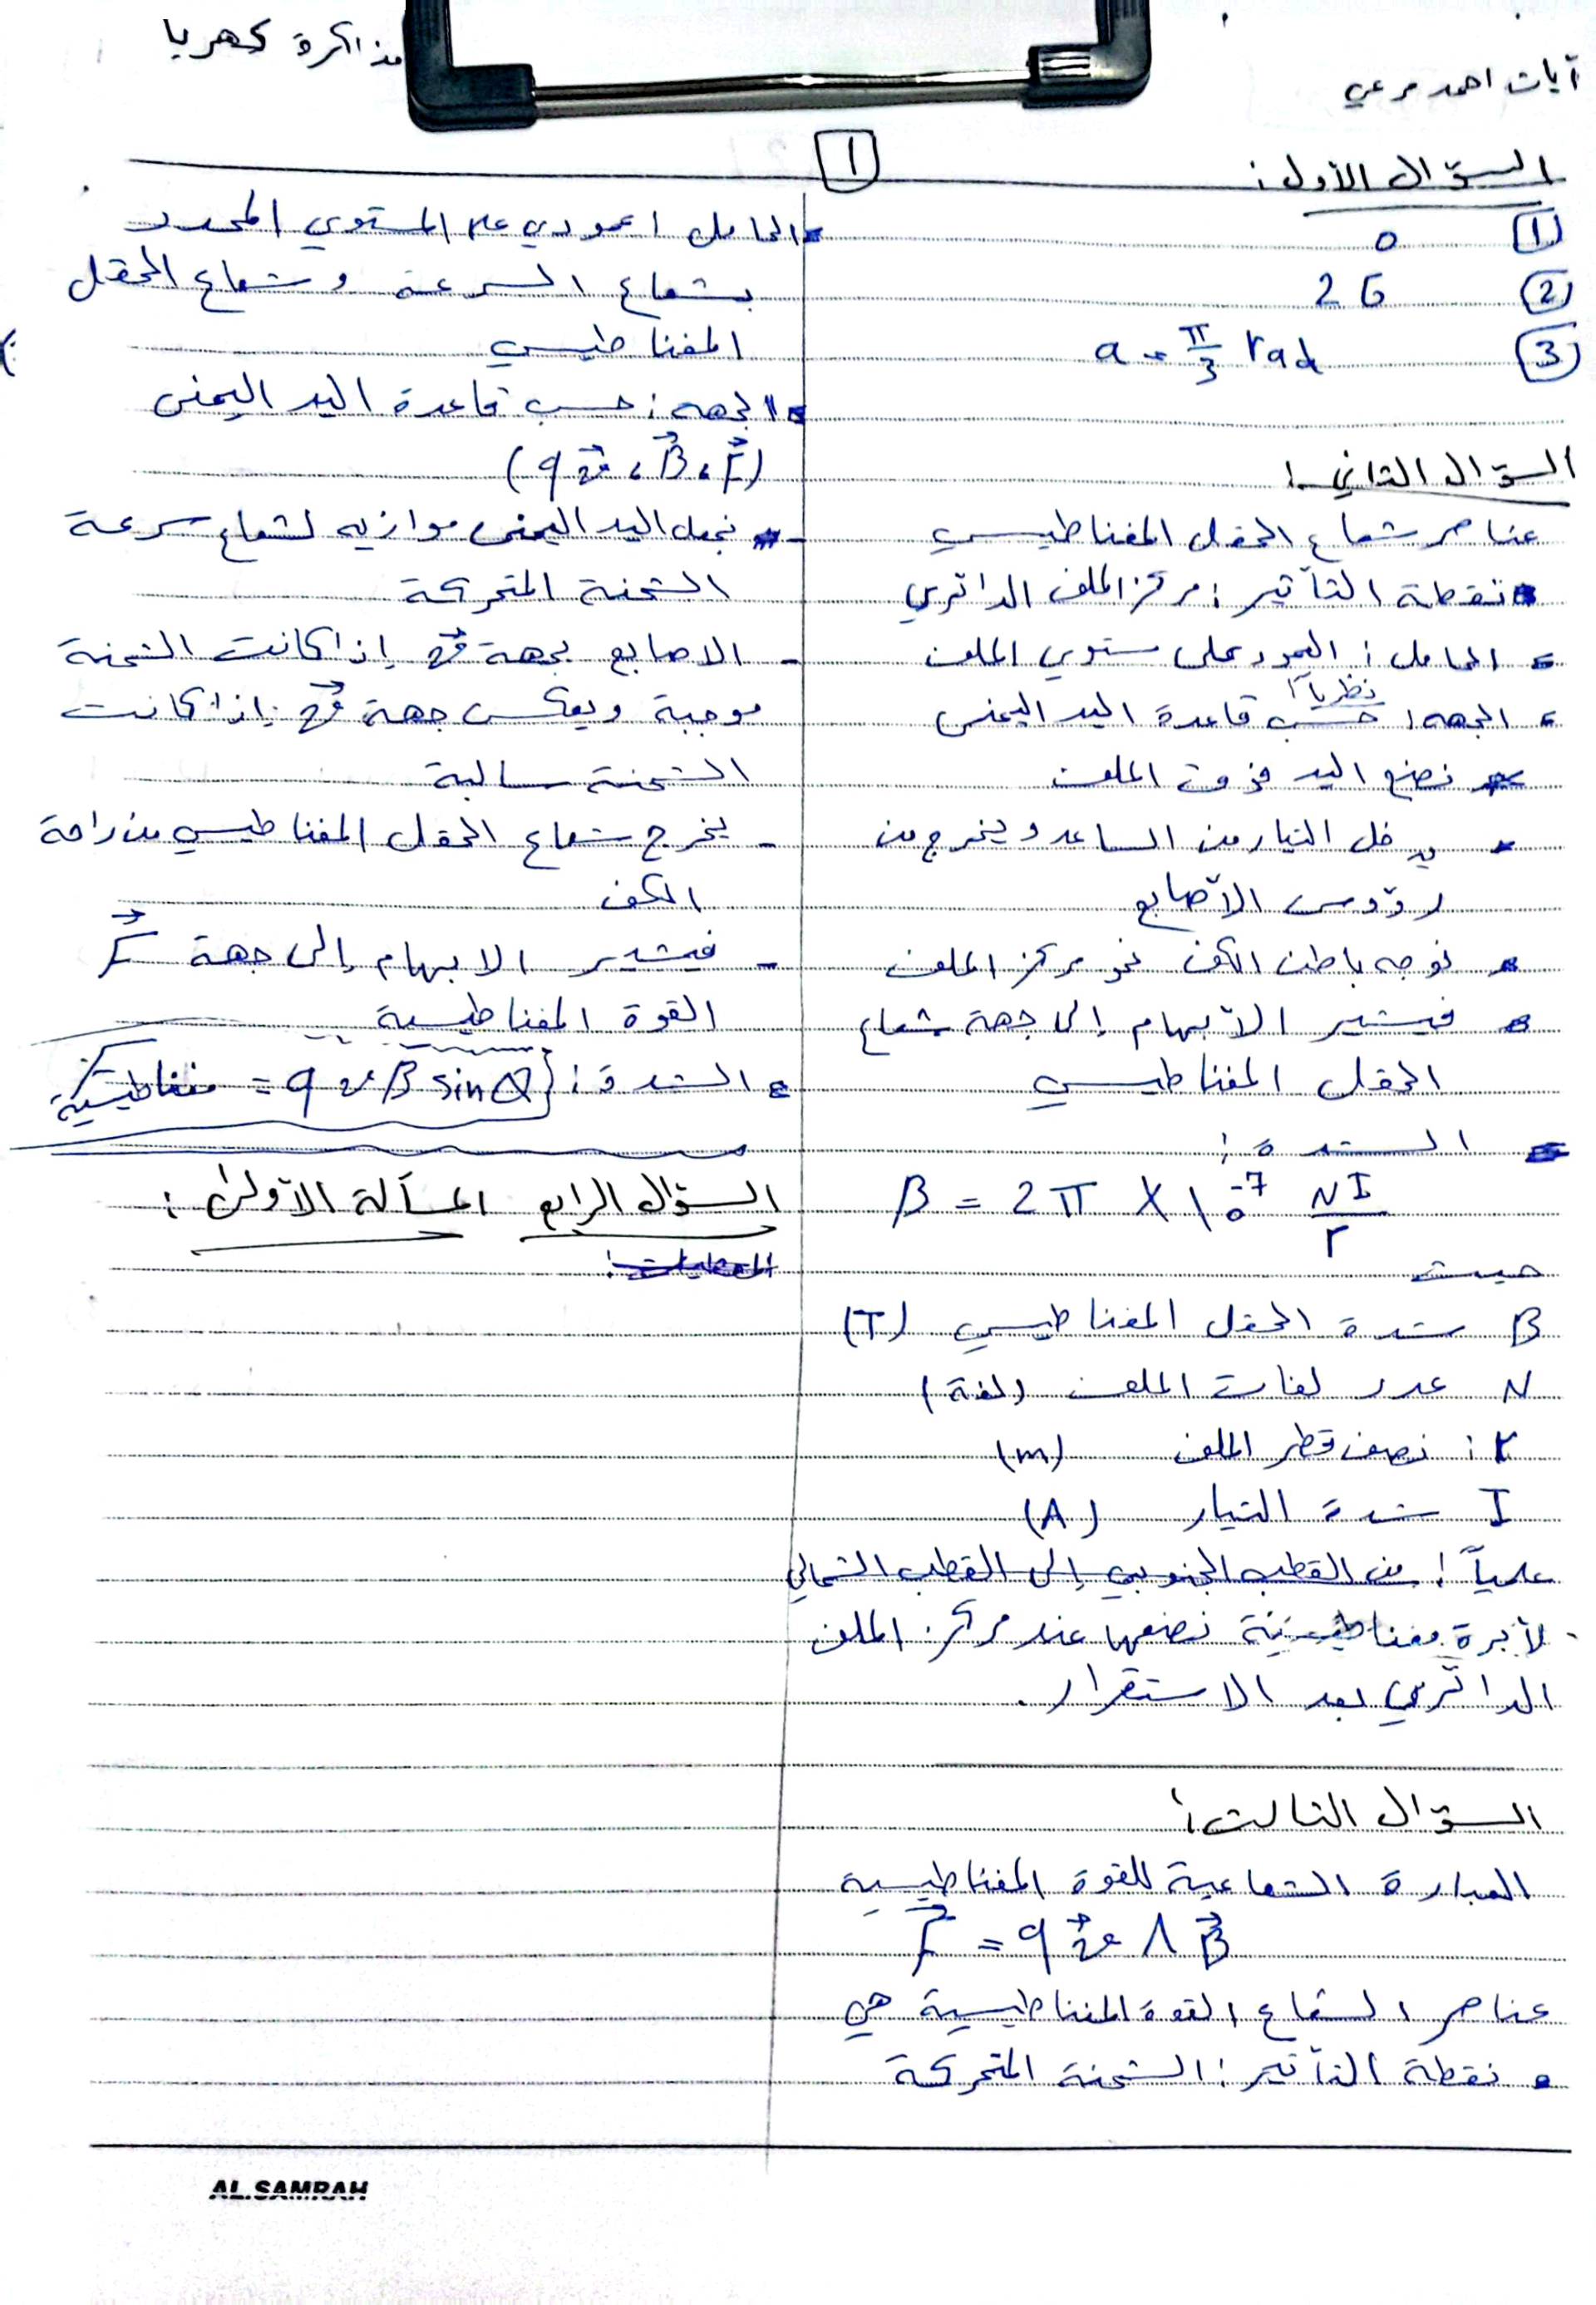 آيات احمد مرعي
مذاكرة كهربا
1
السؤال الأول:
1 0
2 26
3 a = π/3 rad
السؤال الثاني:
عناصر شعاع الحقل المغناطيسي
نقطة التأثير: مركز الملف الدائري
الحامل: العمود على مستوي الملف
الجهة: نظرياً حسب قاعدة اليد اليمنى
نضع اليد فوق الملف
يدخل التيار من الساعد ويخرج من
رؤوس الأصابع
نوجه باطن الكف نحو مركز الملف
فيشير الأبهام إلى جهة شعاع
الحقل المغناطيسي
الشدة:
B = 2π × 10⁻⁷ NI/r
حيث
B شدة الحقل المغناطيسي (T)
N عدد لفات الملف (لفة)
r: نصف قطر الملف (m)
I شدة التيار (A)
علمياً: من القطب الجنوبي إلى القطب الشمالي
لأبرة مغناطيسية نضعها عند مركز الملف
الدائري بعد الاستقرار.
السؤال الثالث:
العبارة الشعاعية للقوة المغناطيسية
F⃗ = q v⃗ Λ B⃗
عناصر الشعاع القوة المغناطيسية هي
نقطة التأثير: الشحنة المتحركة
الحامل: عمودي على المستوي المحدد
بشعاع السرعة وشعاع الحقل
المغناطيسي
الجهة: حسب قاعدة اليد اليمنى
(F⃗، B⃗، q v⃗)
- نجعل اليد اليمنى موازيه لشعاع سرعة
الشحنة المتحركة
- الاصابع بجهة v⃗ إذا كانت الشحنة
موجبة وبعكس جهة v⃗ إذا كانت
الشحنة سالبة
- يخرج شعاع الحقل المغناطيسي من راحة
الكف
- فيشير الابهام إلى جهة F⃗
القوة المغناطيسية
الشدة: q v B sin θ = مغناطيسية
السؤال الرابع المسألة الأولى:
المعطيات:
AL.SAMRAH